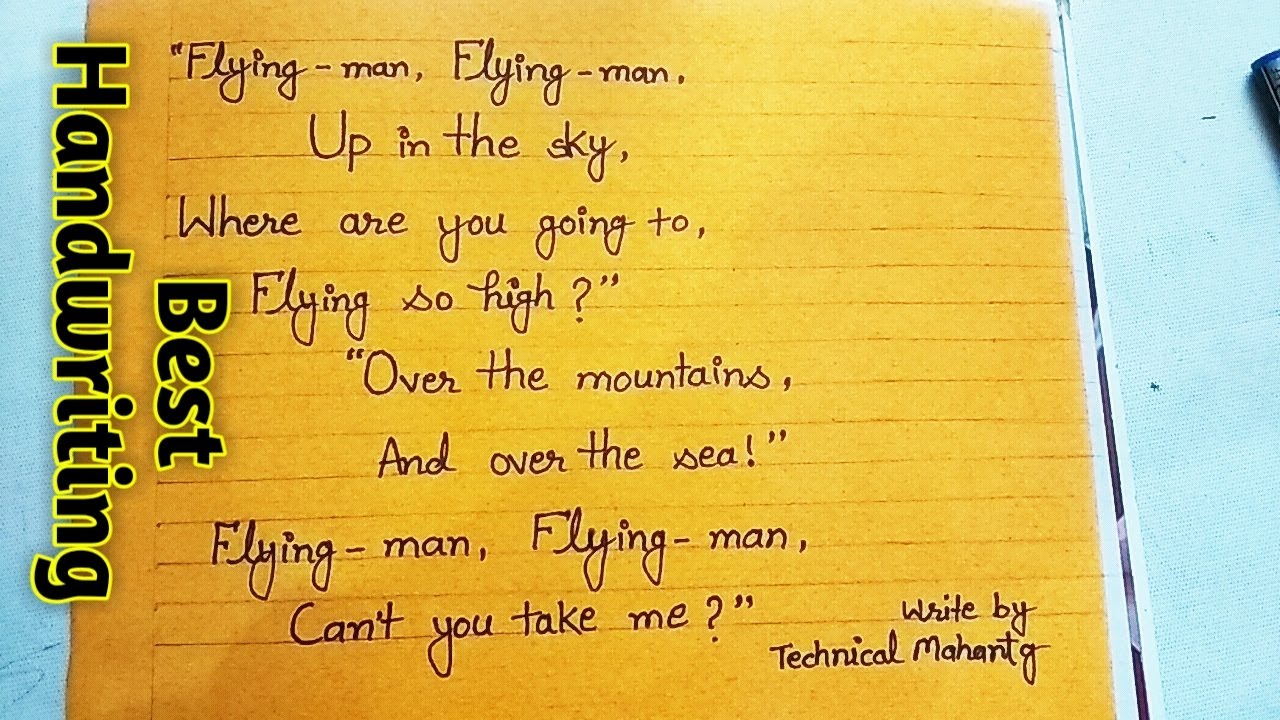 "Flying-man, Flying-man.
Up in the sky,
Where are you going to,
Flying so high?"
"Over the mountains,
And over the sea!"
Flying-man, Flying-man,
Can't you take me?"
Write by
Technical Mahantg
Best
Handwriting